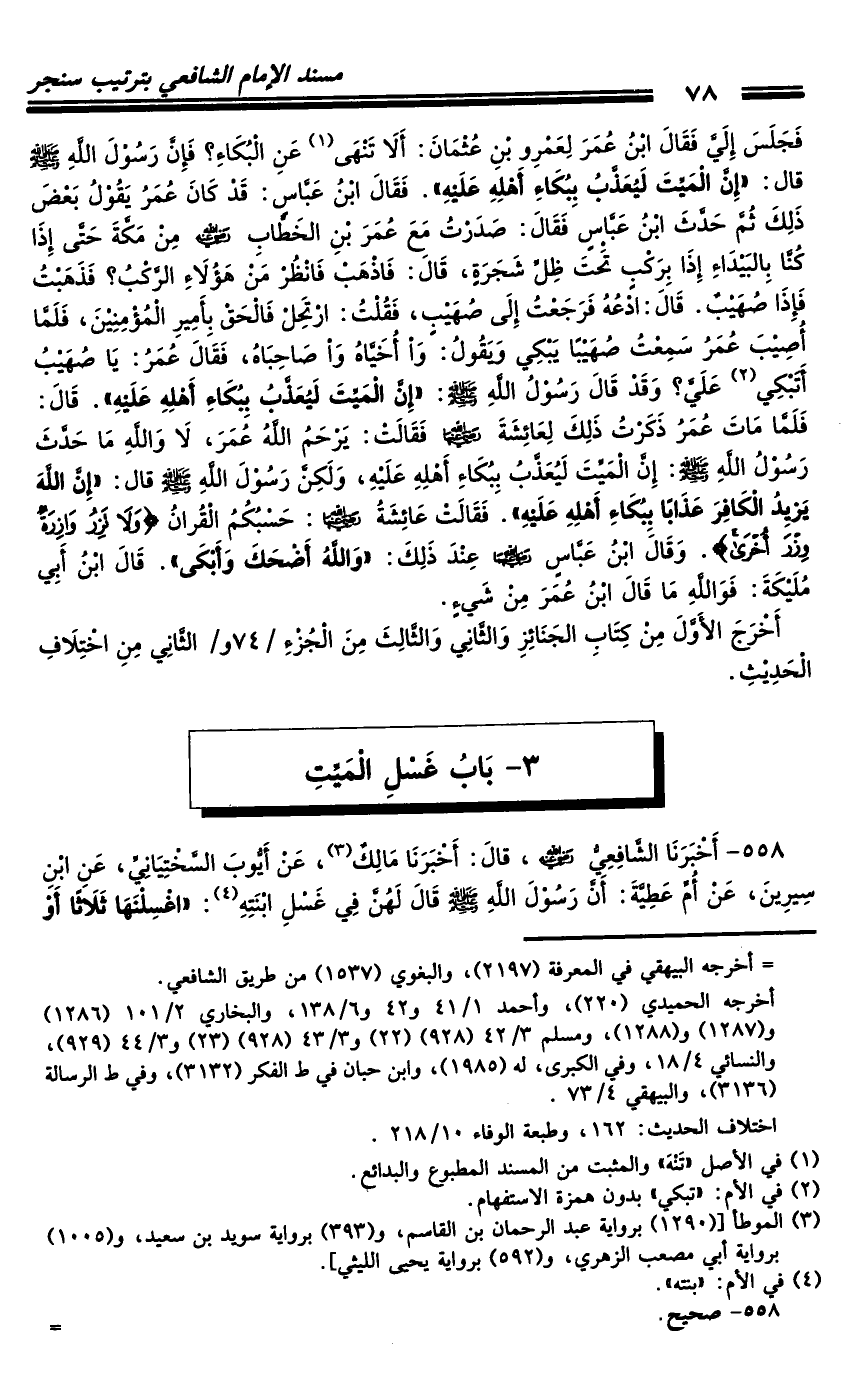 مسند الإمام الشافعي بترتيب سنجر
٧٨
فَجَلَسَ إِلَيَّ فَقَالَ ابْنُ عُمَرَ لِعَمْرِو بْنِ عُثْمَانَ: أَلَا تَنْهَى(١) عَنِ الْبُكَاءِ؟ فَإِنَّ رَسُوْلَ اللَّهِ ﷺ
قال: «إِنَّ الْمَيِّتَ لَيُعَذَّبُ بِبُكَاءِ أَهْلِهِ عَلَيْهِ». فَقَالَ ابْنُ عَبَّاسٍ: قَدْ كَانَ عُمَرُ يَقُوْلُ بَعْضَ
ذَلِكَ ثُمَّ حَدَّثَ ابْنُ عَبَّاسٍ فَقَالَ: صَدَرْتُ مَعَ عُمَرَ بْنِ الخَطَّابِ رضي الله عنه مِنْ مَكَّةَ حَتَّى إِذَا
كُنَّا بِالبَيْدَاءِ إِذَا بِرَكْبٍ تَحْتَ ظِلِّ شَجَرَةٍ، قَالَ: فَاذْهَبْ فَانْظُرْ مَنْ هَؤُلَاءِ الرَّكْبُ؟ فَذَهَبْتُ
فَإِذَا صُهَيْبٌ. قَالَ: ادْعُهُ فَرَجَعْتُ إِلَى صُهَيْبٍ، فَقُلْتُ: ارْتَحِلْ فَالْحَقْ بِأَمِيرِ الْمُؤْمِنِيْنَ، فَلَمَّا
أُصِيْبَ عُمَرُ سَمِعْتُ صُهَيْبًا يَبْكِي وَيَقُولُ: وَاْ أُخَيَّاهُ وَاْ صَاحِبَاهُ، فَقَالَ عُمَرُ: يَا صُهَيْبُ
أَتَبْكِي(٢) عَلَيَّ؟ وَقَدْ قَالَ رَسُوْلُ اللَّهِ ﷺ: «إِنَّ الْمَيِّتَ لَيُعَذَّبُ بِبُكَاءِ أَهْلِهِ عَلَيْهِ». قَالَ:
فَلَمَّا مَاتَ عُمَرُ ذَكَرْتُ ذَلِكَ لِعَائِشَةَ رضي الله عنها فَقَالَتْ: يَرْحَمُ اللَّهُ عُمَرَ، لَا وَاللَّهِ مَا حَدَّثَ
رَسُوْلُ اللَّهِ ﷺ: إِنَّ الْمَيِّتَ لَيُعَذَّبُ بِبُكَاءِ أَهْلِهِ عَلَيْهِ، وَلَكِنَّ رَسُوْلَ اللَّهِ ﷺ قال: «إِنَّ اللَّهَ
يَزِيدُ الْكَافِرَ عَذَابًا بِبُكَاءِ أَهْلِهِ عَلَيْهِ». فَقَالَتْ عَائِشَةُ رضي الله عنها: حَسْبُكُمُ الْقُرانُ ﴿وَلَا تَزِرُ وَازِرَةٌ
وِزْرَ أُخْرَىٰ﴾. وَقَالَ ابْنُ عَبَّاسٍ رضي الله عنهما عِنْدَ ذَلِكَ: «وَاللَّهُ أَضْحَكَ وَأَبْكَى». قَالَ ابْنُ أَبِي
مُلَيْكَةَ: فَوَاللَّهِ مَا قَالَ ابْنُ عُمَرَ مِنْ شَيءٍ.
أَخْرَجَ الأوَّلَ مِنْ كِتَابِ الجَنَائِزِ وَالثَّانِي وَالثَّالِثَ مِنَ الْجُزْءِ /٧٤و/ الثَّانِي مِنِ اخْتِلَافِ
الْحَدِيْثِ.
٣- بَابُ غَسْلِ الْمَيِّتِ
٥٥٨- أَخْبَرَنَا الشَّافِعِيُّ رضي الله عنه، قالَ: أَخْبَرَنَا مَالِكٌ(٣)، عَنْ أَيُّوبَ السَّخْتِيَانِيِّ، عَنِ ابْنِ
سِيرِينَ، عَنْ أُمِّ عَطِيَّةَ: أَنَّ رَسُوْلَ اللَّهِ ﷺ قَالَ لَهُنَّ فِي غَسْلِ ابْنَتِهِ(٤): «اغْسِلْنَهَا ثَلَاثًا أَوْ
= أخرجه البيهقي في المعرفة (٢١٩٧)، والبغوي (١٥٣٧) من طريق الشافعي.
أخرجه الحميدي (٢٢٠)، وأحمد ٤١/١ و٤٢ و١٣٨/٦، والبخاري ١٠١/٢ (١٢٨٦)
و(١٢٨٧) و(١٢٨٨)، ومسلم ٤٢/٣ (٩٢٨) (٢٢) و٤٣/٣ (٩٢٨) (٢٣) و٤٤/٣ (٩٢٩)،
والنسائي ١٨/٤، وفي الكبرى، له (١٩٨٥)، وابن حبان في ط الفكر (٣١٣٢)، وفي ط الرسالة
(٣١٣٦)، والبيهقي ٧٣/٤ .
اختلاف الحديث: ١٦٢، وطبعة الوفاء ٢١٨/١٠ .
(١) في الأصل «تَنْهَ» والمثبت من المسند المطبوع والبدائع.
(٢) في الأم: «تبكي» بدون همزة الاستفهام.
(٣) الموطأ [(١٢٩٠) برواية عبد الرحمان بن القاسم، و(٣٩٣) برواية سويد بن سعيد، و(١٠٠٥)
برواية أبي مصعب الزهري، و(٥٩٢) برواية يحيى الليثي].
(٤) في الأم: «بنته».
٥٥٨- صحيح.
=